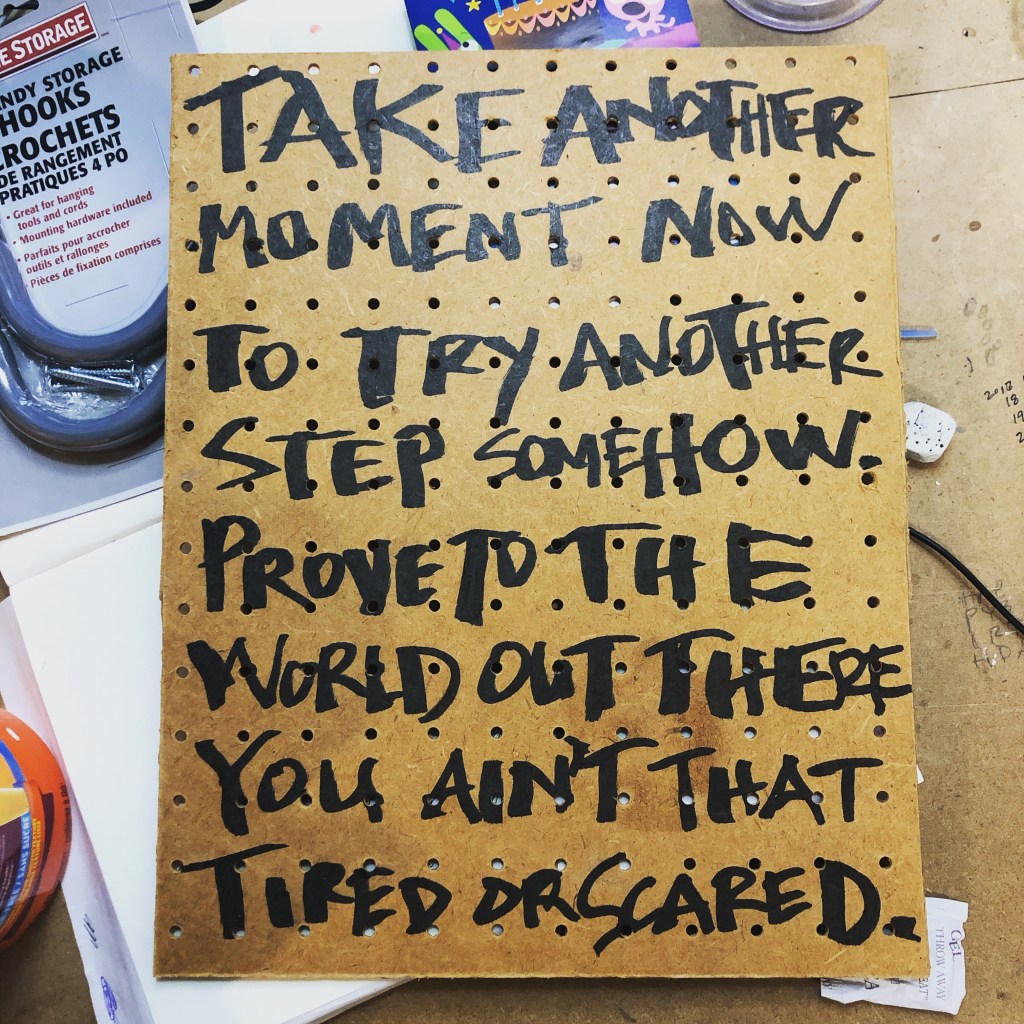 E STORAGE
NDY STORAGE
HOOKS
CROCHETS
DE RANGEMENT
PRATIQUES 4 PO
• Great for hanging
tools and cords
• Mounting hardware included
• Parfaits pour accrocher
outils et rallonges
• Pièces de fixation comprises
TAKE ANOTHER
MOMENT NOW
TO TRY ANOTHER
STEP SOMEHOW.
PROVE TO THE
WORLD OUT THERE
YOU AIN'T THAT
TIRED OR SCARED.
2017
18
19
SANS SUCRE
GEL
THROW AWAY
EAT"